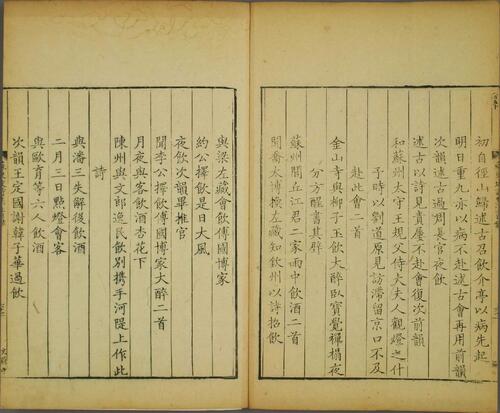 初自徑山歸述古召飲介亭以病先起
明日重九亦以病不赴述古會再用前韻
次韻述古過周長官夜飲
述古以詩見責屢不赴會復次前韻
和蘇州太守王規父侍太夫人觀燈之什
予時以劉道原見訪滯留京口不及
赴此會二首
金山寺與柳子玉飲大醉臥寶覺禪榻夜
分方醒書其壁
蘇州閭丘江君二家雨中飲酒二首
聞喬太博換左藏知欽州以詩招飲
與梁左藏會飲傅國博家
約公擇飲是日大風
夜飲次韻畢推官
聞李公擇飲傅國博家大醉二首
月夜與客飲酒杏花下
陳州與文郎逸民飲別攜手河隄上作此
詩
與潘三失解後飲酒
二月三日點燈會客
與歐育等六人飲酒
次韻王定國謝韓子華過飲